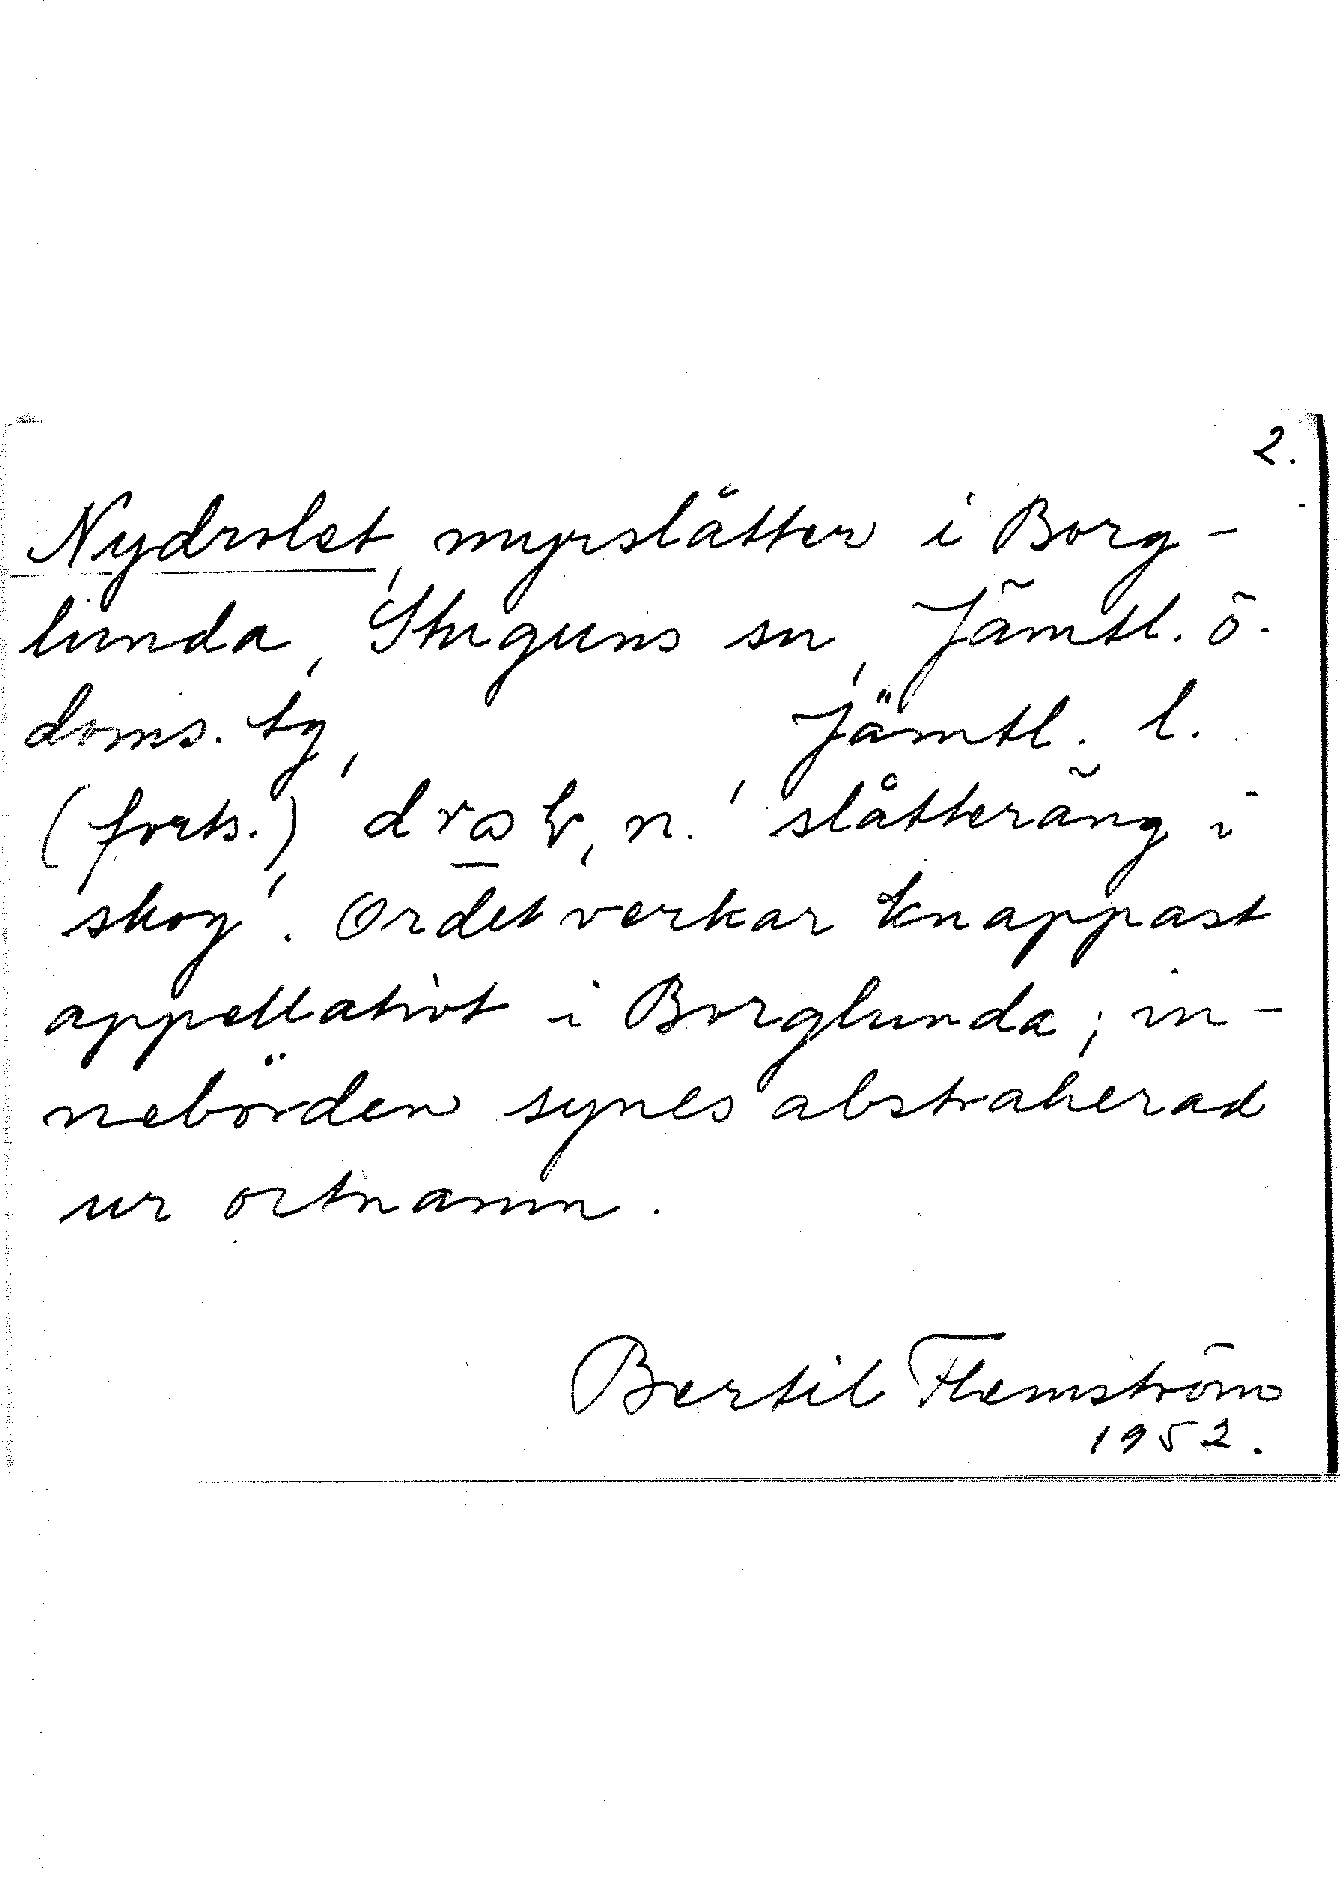 2.
Nydrolet, myrslåtter i Borg-
lunda, Stuguns sn, Jämtl. ö.
doms. tg, Jämtl. l.
(forts.) n. 'slåtteräng i
skog'. Ordet verkar knappast
appellativt i Borglunda; in-
nebörden synes abstraherad
ur ortnamn.
Bertil Flemström
1952.